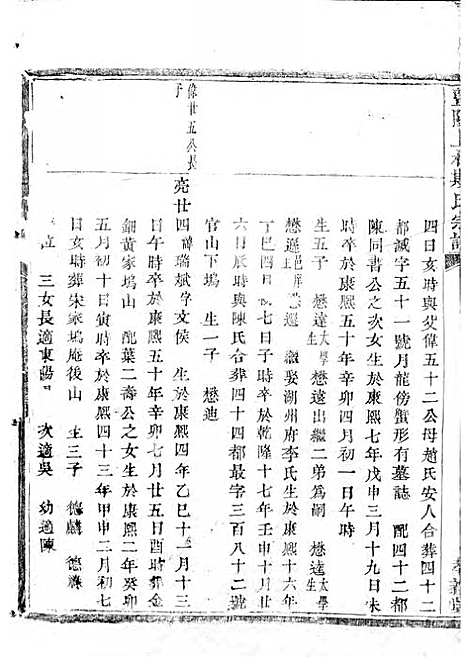 暨陽上林斯氏宗譜
四日亥時與父偉五十二公母趙氏安人合葬四十二
都誠字五十一號月龍傍蟹形有墓誌 配四十二都
陳同書公之次女生於康熙七年戊申三月十九日未
時卒於康熙五十年辛卯四月初一日午時
懋遜 邑庠生 懋達 太學生 懋達出繼二弟為嗣
懋 繼娶湖州府李氏生於康熙十六年
丁巳四月 七日子時卒於乾隆十七年壬申十月
六日辰時與陳氏合葬四十四都最字三百八十二號
官山下塢 生一子 懋迪
偉廿五公長子
亮廿四 諱瑞斌字文侯 生於康熙四年乙巳十二月十三
日午時卒於康熙五十年辛卯七月廿五日酉時葬金
鈿黃家塢山 配葉二壽公之女生於康熙二年癸卯
五月初十日寅時卒於康熙四十三年甲申二月初七
日亥時葬宋家塢庵後山 生三子 德麟 德
三女長適東陽 次適吳 幼適陳